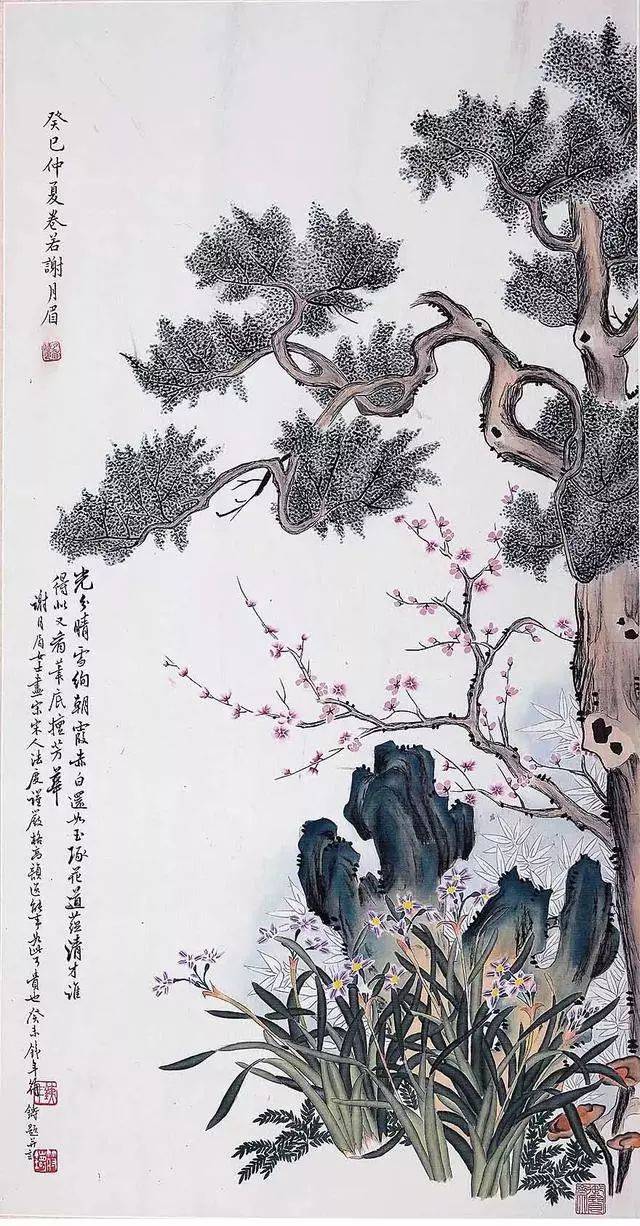 癸巳仲夏卷若謝月眉
光分晴雪絢朝霞赤白還如玉琢花道蘊清才誰
得似又看筆底擅芳華
謝月眉女士畫宗宋人法度謹嚴格高韻逸能事如此可貴也癸未年題并言